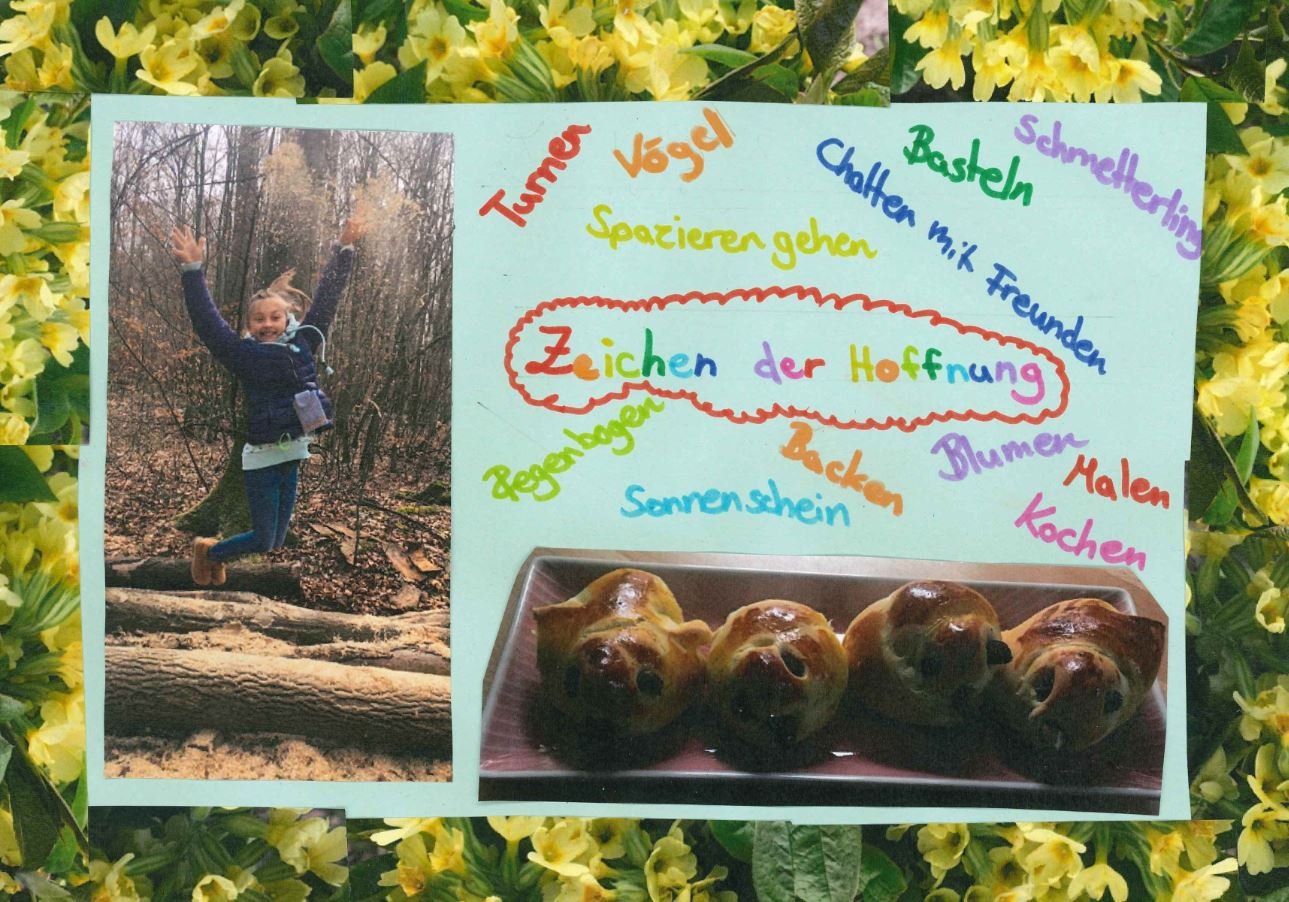 Turnen
Vögel
Basteln
Schmetterling
Chatten mit Freunden
Spazieren gehen
Zeichen der Hoffnung
Regenbogen
Backen
Blumen
Malen
Sonnenschein
Kochen